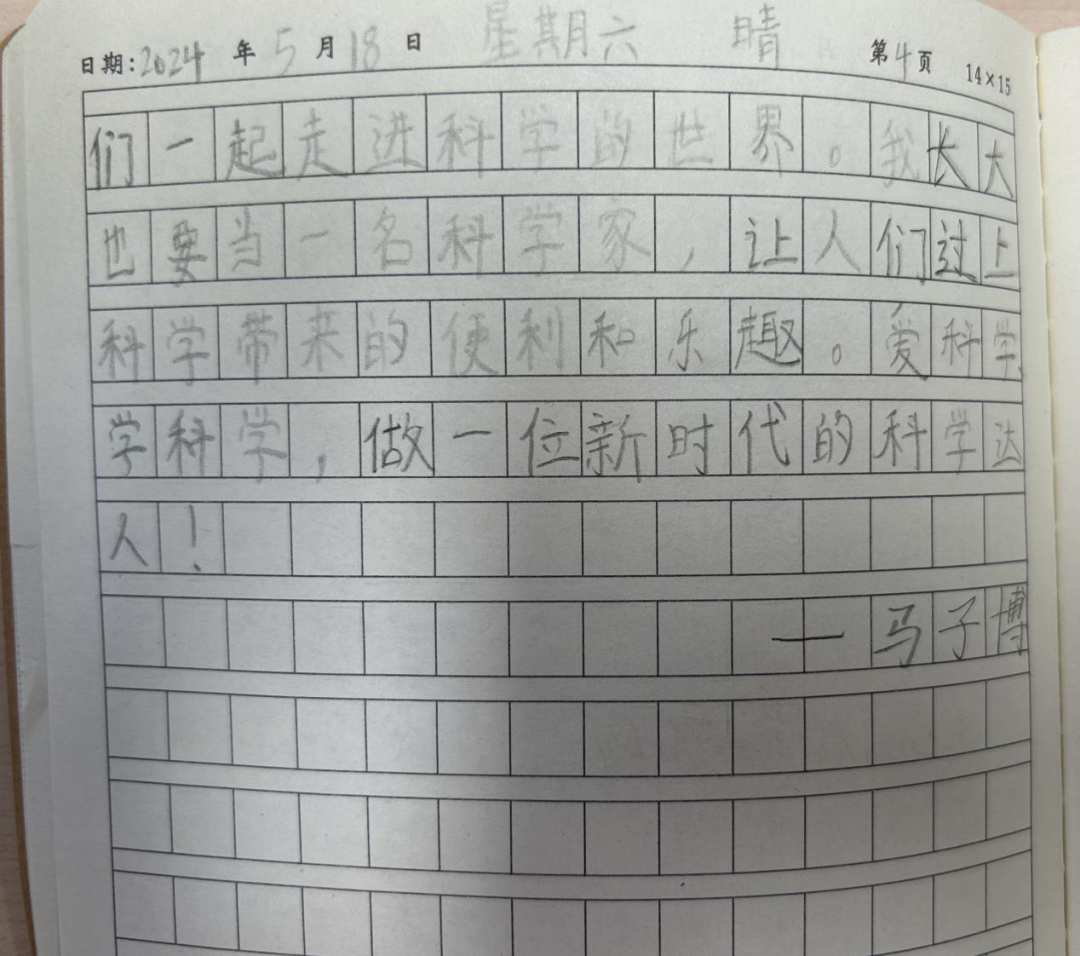 日期:2024 年 5 月 18 日 星期六 晴 第4页 14×15
们一起走进科学的世界。我长大
也要当一名科学家，让人们过上
科学带来的便利和乐趣。爱科学
学科学，做一位新时代的科学达
人！
—马子博